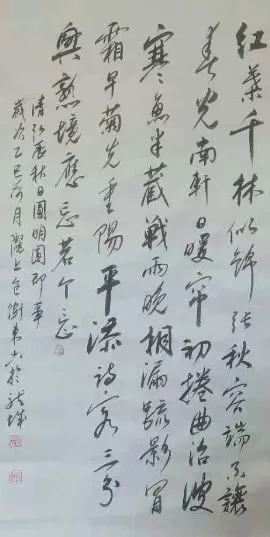 紅葉千林似錦張秋容端不讓
春光南軒日暖帘初捲曲沼波
寒魚半藏戰雨晚桐漏疏影冒
霜早菊先重陽平添詩客三分
興熟境應忘若个忘
清弘历秋日圓明園即事
歲次乙巳荷月衛東書於龍城